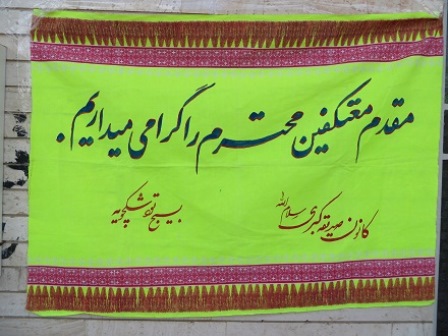 مقدم معتکفین محترم را گرامی میداریم.
کانون صدیقه کبری سلام الله
بسیج توشکچویه